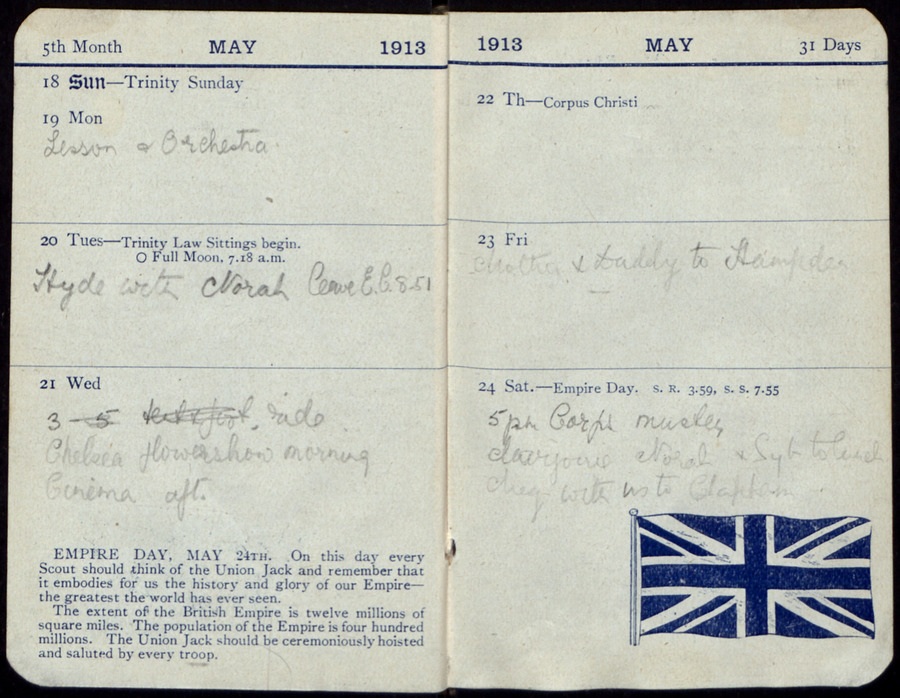 5th Month MAY 1913
18 Sun—Trinity Sunday
19 Mon
Lesson & Orchestra
20 Tues—Trinity Law Sittings begin.
O Full Moon, 7.18 a.m.
Hyde with Norah Leave E.C. 8.51
21 Wed
3 — 5 ride
Chelsea flowershow morning
Cinema aft.
EMPIRE DAY, MAY 24TH. On this day every
Scout should think of the Union Jack and remember that
it embodies for us the history and glory of our Empire—
the greatest the world has ever seen.
The extent of the British Empire is twelve millions of
square miles. The population of the Empire is four hundred
millions. The Union Jack should be ceremoniously hoisted
and saluted by every troop.
1913 MAY 31 Days
22 Th—Corpus Christi
23 Fri
Mother & Daddy to Hampden
24 Sat.—Empire Day. S. R. 3.59, S. S. 7.55
5pm Corps muster
Norah & Syb to lunch
with us to Clapham